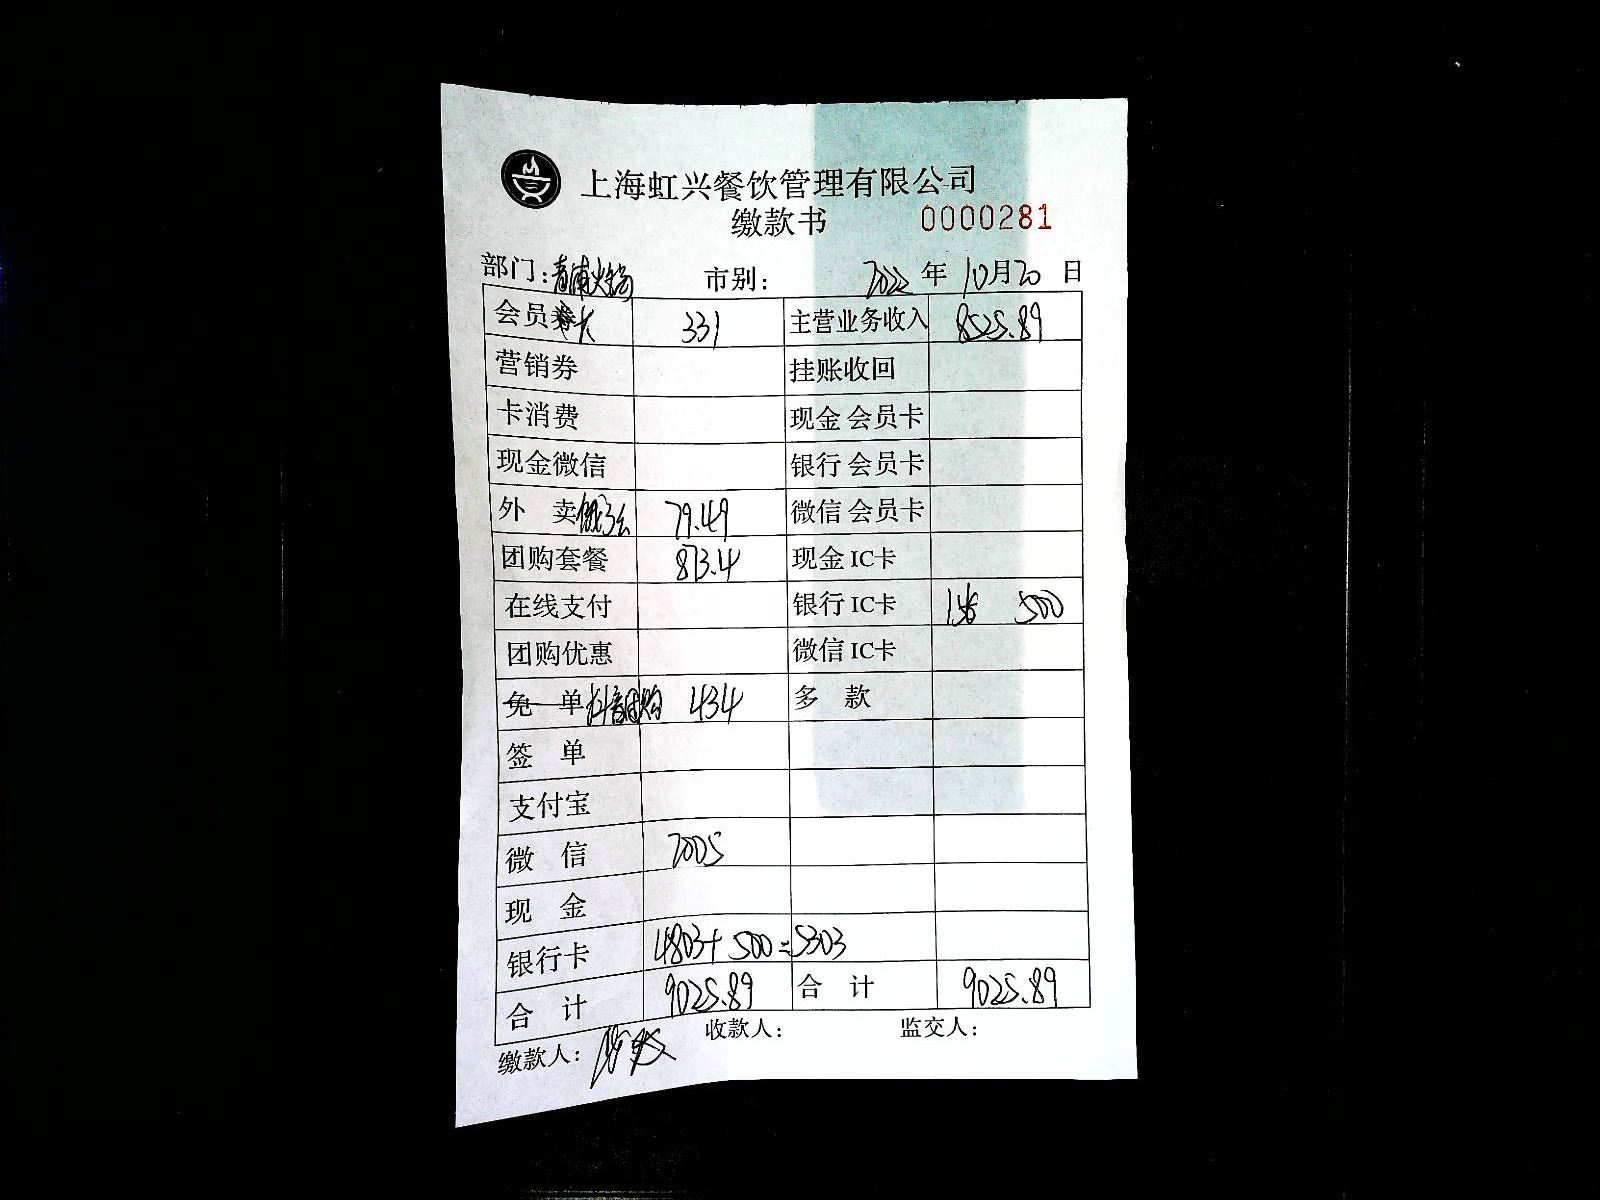 上海虹兴餐饮管理有限公司
缴款书 0000281
部门：青浦火锅 市别： 2022 年 10月20 日
会员卡 331 主营业务收入 8525.89
营销券 挂账收回
卡消费 现金 会员卡
现金微信 银行 会员卡
外 卖饿了么 79.49 微信 会员卡
团购套餐 873.4 现金 IC卡
在线支付 银行 IC卡 500
团购优惠 微信 IC卡
免 单 抖音团购 434 多 款
签 单
支付宝
微 信 2005
现 金
银行卡 4803+500=5303
合 计 9025.89 合 计 9025.89
缴款人： 收款人： 监交人：